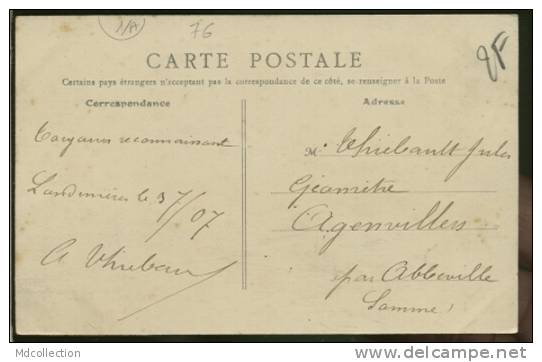 1/A
76
8F
CARTE POSTALE
Certains pays étrangers n'acceptant pas la correspondance de ce côté, se renseigner à la Poste
Correspondance
Adresse
Toujours reconnaissant
Londinières le 3/7/07
A Thiebault
M. Thiébault Jules
Géomètre
Agenvillers
par Abbeville
Somme
Mdcollection
www.delcampe.net